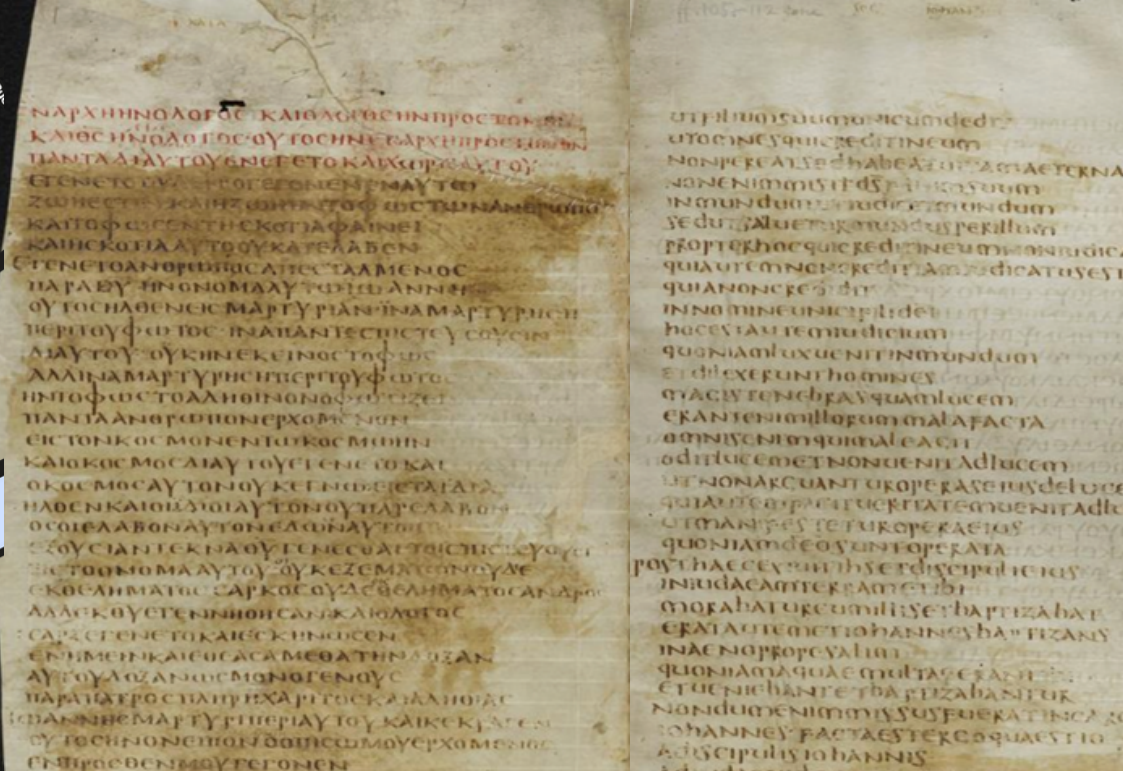 ΕΝΑΡΧΗΗΝΟΛΟΓΟϹ ΚΑΙΟΛΟΓΟϹΗΝΠΡΟϹΤΟΝ
ΚΑΙΘϹ ΗΝΟΛΟΓΟϹ·ΟΥΤΟϹΗΝΕΝΑΡΧΗΠΡΟϹΤΟΝ
ΠΑΝΤΑ ΔΙΑΥΤΟΥΕΓΕΝΕΤΟ ΚΑΙΧΩΡΙϹΑΥΤΟΥ
ΕΓΕΝΕΤΟΟΥΔΕΝ ΟΓΕΓΟΝΕΝ ΕΝΑΥΤΩ
ΖΩΗΕϹΤΙΝ ΚΑΙΗΖΩΗΗΝΤΟΦΩϹΤΩΝΑΝΘΡΩΠΩΝ
ΚΑΙΤΟΦΩϹΕΝΤΗϹΚΟΤΙΑΦΑΙΝΕΙ
ΚΑΙΗϹΚΟΤΙΑΑΥΤΟΟΥΚΑΤΕΛΑΒΕΝ
ΕΓΕΝΕΤΟΑΝΘΡΩΠΟϹΑΠΕϹΤΑΛΜΕΝΟϹ
ΠΑΡΑΚΥ ΗΝΟΝΟΜΑΑΥΤΩΙΩΑΝΝΗΝ
ΟΥΤΟϹΗΛΘΕΝΕΙϹ ΜΑΡΤΥΡΙΑΝ·ΪΝΑΜΑΡΤΥΡΗϹΗ
ΠΕΡΙΤΟΥΦΩΤΟϹ ΙΝΑΠΑΝΤΕϹΠΙϹΤΕΥϹΟΥϹΙΝ
ΔΙΑΥΤΟΥ ΟΥΚΗΝΕΚΕΙΝΟϹΤΟΦΩϹ
ΑΛΛΙΝΑΜΑΡΤΥΡΗϹΗΠΕΡΙΤΟΥΦΩΤΟϹ
ΗΝΤΟΦΩϹΤΟΑΛΗΘΙΝΟΝΟΦΩΤΙΖΕΙ
ΠΑΝΤΑΑΝΘΡΩΠΟΝΕΡΧΟΜΕΝΟΝ
ΕΙϹΤΟΝΚΟϹΜΟΝΕΝΤΩΚΟϹΜΩΗΝ
ΚΑΙΟΚΟϹΜΟϹΔΙΑΥΤΟΥΕΓΕΝΕΤΟΚΑΙ
ΟΚΟϹΜΟϹΑΥΤΟΝΟΥΚΕΓΝΩ·ΕΙϹΤΑΙΔΙΑ
ΗΛΘΕΝΚΑΙΟΙΙΔΙΟΙΑΥΤΟΝΟΥΠΑΡΕΛΑΒΟΝ
ΟϹΟΙΕΛΑΒΟΝΑΥΤΟΝΕΔΩΚΕΝΑΥΤΟΙϹ
ΕΞΟΥϹΙΑΝΤΕΚΝΑΘΥΓΕΝΕϹΘΑΙΤΟΙϹΠΙϹΤΕΥΟΥϹΙ
ΕΙϹΤΟΟΝΟΜΑΑΥΤΟΥ ΟΥΚΕΞΕΜΑΤΩΝΟΥΔΕ
ΕΚΘΕΛΗΜΑΤΟϹ ϹΑΡΚΟϹΟΥΔΕΘΕΛΗΜΑΤΟϹΑΝΔΡΟϹ
ΑΛΛΕΚΘΥΕΓΕΝΝΗΘΗϹΑΝ·ΚΑΙΟΛΟΓΟϹ
ϹΑΡΞΕΓΕΝΕΤΟΚΑΙΕϹΚΗΝΩϹΕΝ
ΕΝΗΜΕΙΝΚΑΙΕΘΕΑϹΑΜΕΘΑΤΗΝΔΟΞΑΝ
ΑΥΤΟΥΔΟΞΑΝΩϹΜΟΝΟΓΕΝΟΥϹ
ΠΑΡΑΠΑΤΡΟϹΠΛΗΡΗΧΑΡΙΤΟϹΚΑΙΑΛΗΘΙΑϹ
ΙΩΑΝΝΗϹΜΑΡΤΥΡΙΠΕΡΙΑΥΤΟΥ ΚΑΙΚΕΚΡΑΓΕΝ
ΟΥΤΟϹΗΝΟΝΕΙΠΟΝΟΟΠΙϹΩΜΟΥΕΡΧΟΜΕΝΟϹ
ΕΝΠΡΟϹΘΕΝΜΟΥΓΕΓΟΝΕΝ
utfiliumsuumunicumdedit
utomnesquicreditineum
nonpereatsedhabeatuitamaeternam
nonenimmisitds filiumsuum
inmundum utiudicetmundum
sedutsalueturmundusperillum
propterhocquicreditineumnoniudica
quiautemnoncreditiamiudicatusest
quianoncredidit
innomineunicifilidei
hocestautemiudicium
quoniamluxuenitinmundum
etdilexerunthomines
magistenebrasquamlucem
erantenimillorummalafacta
omnisenimquimaleagit
oditlucemetnonuenitadlucem
utnonarguanturoperaseiusdeluce
quiautemfacitueritatemuenitadlu
utmanifesteturoperaeius
quoniamdeosuntoperata
posthaecexuitihsetdiscipulieius
iniudaeamterrametibi
morabaturcumillisetbaptizabat
eratautemetiohannesbaptizans
inaenonpropesalim
quoniamaquaemultaeerant
etueniebantetbaptizabantur
nondumenimmissusfueratincar
iohannes factaestergoquaestio
adiscipulisiohannis